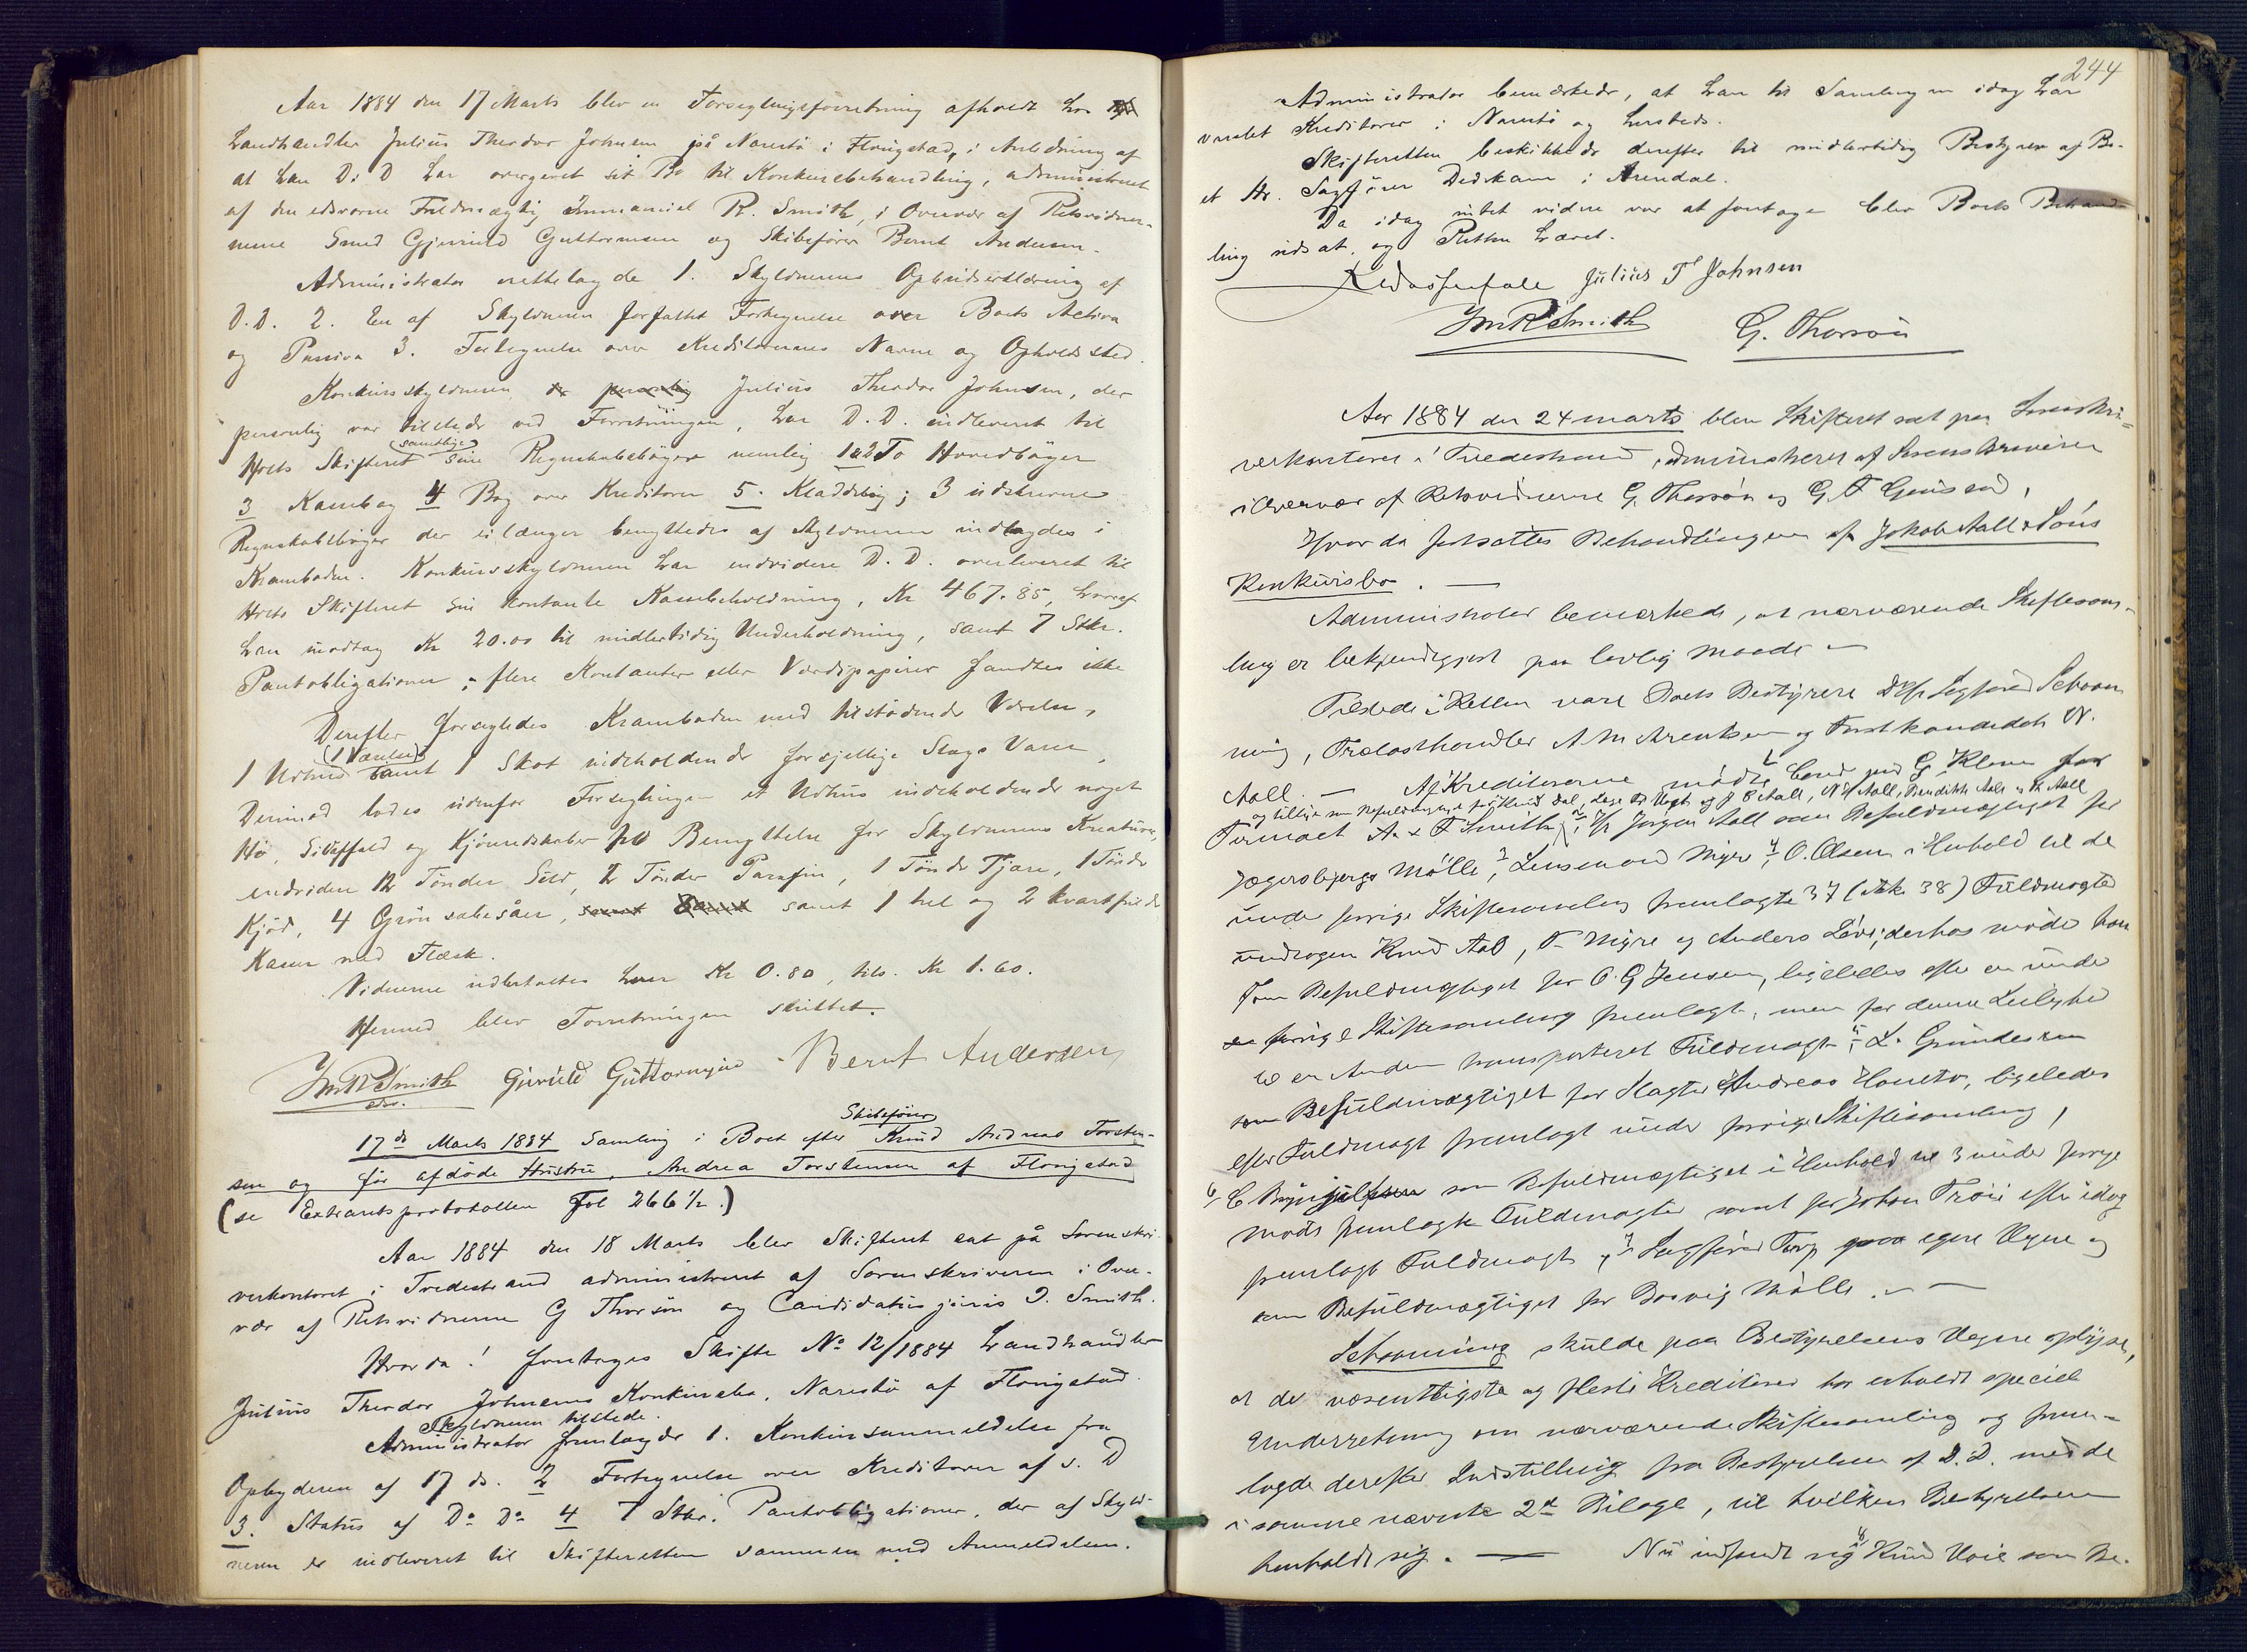 Aar 1884 den 17 Marts blev en Forseglingsforretning afholdt hos
Landhandler Julius Theodor Johnsen på Narestö i Flosigstad, i Anledning af
at han D. D har overgivet sit Bo til Konkursbehandling, administreret
af den edsvorne Fuldmægtig Immanuel R. Smith, i Overvær af Retsvidner-
nerne Smed Gjeruld Guttormsen og Skibsfører Bernt Andersen.
Administrator irettelagde 1. Skyldnerens Opbudserklæring af
D.D. 2. En af Skyldneren forfattet Fortegnelse over Boets Activa
og Passiva 3. Fortegnelse over Kreditorernes Navne og Opholdssted.
Konkursskyldneren Julius Theodor Johnsen, der
personlig var tilstede ved Forretningen, har D. D. indleveret til
(samtlige)
Hrets Skifteret sine Regnskabsbøger nemlig 1 & 2 To Hovedbøger
3 Kassebog 4 Bog over Kreditorer 5. Kladdebog; 3 udskrevne
Regnskabsbøger der ei længer benyttedes af Skyldneren indlagdes i
Kramboden. Konkursskyldneren har endvidere D. D. overleveret til
Hrets Skifteret sin kontante Kassebeholdning, Kr 467.85, hvoraf
han modtog Kr 20.00 til midlertidig Underholdning, samt 7 Stkr.
Pantobligationer; flere Kontanter eller Værdipapirer fandtes ikke
Derefter forsegledes Kramboden med tilstødende Værelse,
(1 Værelse)
1 Udhus samt 1 Skot indeholdende forsjellige Slags Varer,
Derimod lodes udenfor Forseglingen et Udhus indeholdende noget
Hø, Sildaffald og Kjöreredskaber på Benyttelse for Skyldnerens Kreaturer,
endvidere 12 Tönder Sild, 2 Tönder Parafin, 1 Tönde Tjære, 1 Tönde
Kjöd, 4 Grönsæbesåer, samt 1 hel og 2 kvartfulde
Kasser med Flæsk.
Vidnerne udbetaltes hver Kr 0.80, tils. Kr 1.60.
Hermed blev Forretningen sluttet.
ImRSmith Gjeruld Guttormsen Bernt Andersen
edsv.
Skibsfører
17de Marts 1884 Samling i Boet efter Knud Andreas Torsten-
sen og før afdöde Hustru, Andrea Torstensen af Flosigstad
(se Extraretsprotokollen Fol 266½.)
Aar 1884 den 18 Marts blev Skifteret sat på Sorenskri-
verkontoret i Tvedestrand administreret af Sorenskriveren i Over-
vær af Retsvidnerne G Thorsön og Candidatus juris O. Smith.
Hvor da! foretoges Skifte No 12/1884 Landhandler
Julius Theodor Johnsens Konkursbo, Narestö af Flosigstad.
Skyldneren tilstede.
Administrator fremlagde 1. Konkursanmeldelse fra
Opbyderen af 17 ds. 2 Fortegnelse over Kreditorer af s. D
3. Status af Do Do 4 7 Stkr. Pantobligationer, der af Skyld-
neren er indleveret til Skifteretten sammen med Anmeldelsen.
244
Administrator bemærkede, at han til Samlingen idag har
varslet Kreditorer i Narestö og hersteds.
Skifteretten beskikkede derefter til midlertidig Bestyrer af Bo-
et Hr. Sagförer Dedekam i Arendal.
Da idag intet videre var at foretage blev Boets Behand-
ling udsat, og Retten hævet.
Julius T Johnsen
ImRSmith G. Thorsön
Aar 1884 den 24 marts blev Skifteret sat paa Sorenskri-
verkontoret i Tvedestrand, administreret af Sorenskriveren
i Overvær af Retsvidnerne G. Thorsön og G. F
Hvor da fortsattes Behandlingen af Jakob Aall & Söns
Konkursbo. —
Administrator bemærkede, at nærværende Skiftesam-
ling er bekjendtgjort paa lovlig Maade —
Tilstede i Retten vare Boets Bestyrere D'Hrr Sagförer Schaan
ning, Trælasthandler A M Arentsen og Forstkandidat N.
Aall. — Af Kreditorerne mødte 1 G. Kleve for
og tillige som Befuldmægtiget for Knud Dal, Læge Vogt og J C Aall, N Aall, Benedikte Aall
Firmaet A & F Smith, 2 Hr Jørgen Aall som Befuldmægtiget for
Jægersbjergs Mølle, 3 Lensmand Myre, 4 O. Olsen i Henhold til de
under forrige Skiftesamling fremlagte 37 (rettere 38) Fuldmagter
undtagen Knud Aas, T. Myre og Anders derhos møder han
som Befuldmægtiget for O. G Jensen, ligeledes efter en under
forrige Skiftesamling fremlagt, men for denne Leilighed
til en Anden transporteret Fuldmagt; 5 L. Grundesen
som Befuldmægtiget for Slagter Andreas ligeledes
efter Fuldmagt fremlagt under forrige Skiftesamling,
6 C. som Befuldmægtiget i Henhold til 3 under forrige
Møde fremlagte Fuldmagter samt for Johan efter idag
fremlagt Fuldmagt, 7 Sagförer Torp egne Vegne og
som Befuldmægtiget for Bosvig Mølle. —
Schaanning skulde paa Bestyrelsens Vegne oplyse,
at de væsentligste og fleste Kreditorer har erholdt speciel
Underretning om nærværende Skiftesamling og frem-
lagde derefter Indstilling fra Bestyrelsen af D. D. med de
i samme nævnte 2de Bilage, til hvilken Bestyrelsen
henholdt sig. — Nu indfandt sig 8 Knud Voie som Be-